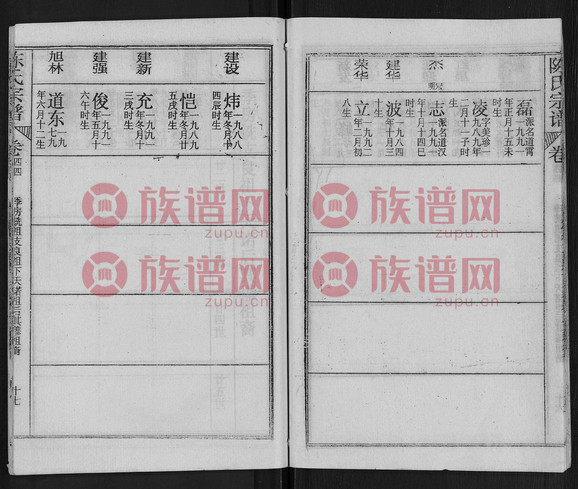 陈氏宗谱
卷
磊
派名道霄
一九九一
年正月十五未
时生
凌
字美珍一
九八九年
二月十一子时
生
杰
志
派名道汉
一九九一
年十月十四巳
时生
建华
波
一九八四
年十月十三
十生
荣华
立
一九九二
年二月初
八生
建设
炜
一九八八
年冬月十
四辰时生
恺
一九八九
年冬月廿
五戌时生
建新
充
一九九一
年冬月十
三戌时生
建强
俊
一九九一
年五月十
六午时生
旭林
道东
一九七九
年六月十二生
陈氏宗谱
卷四四
十七
族谱网
zupu.cn
族谱网
zupu.cn
族谱网
zupu.cn
族谱网
zupu.cn